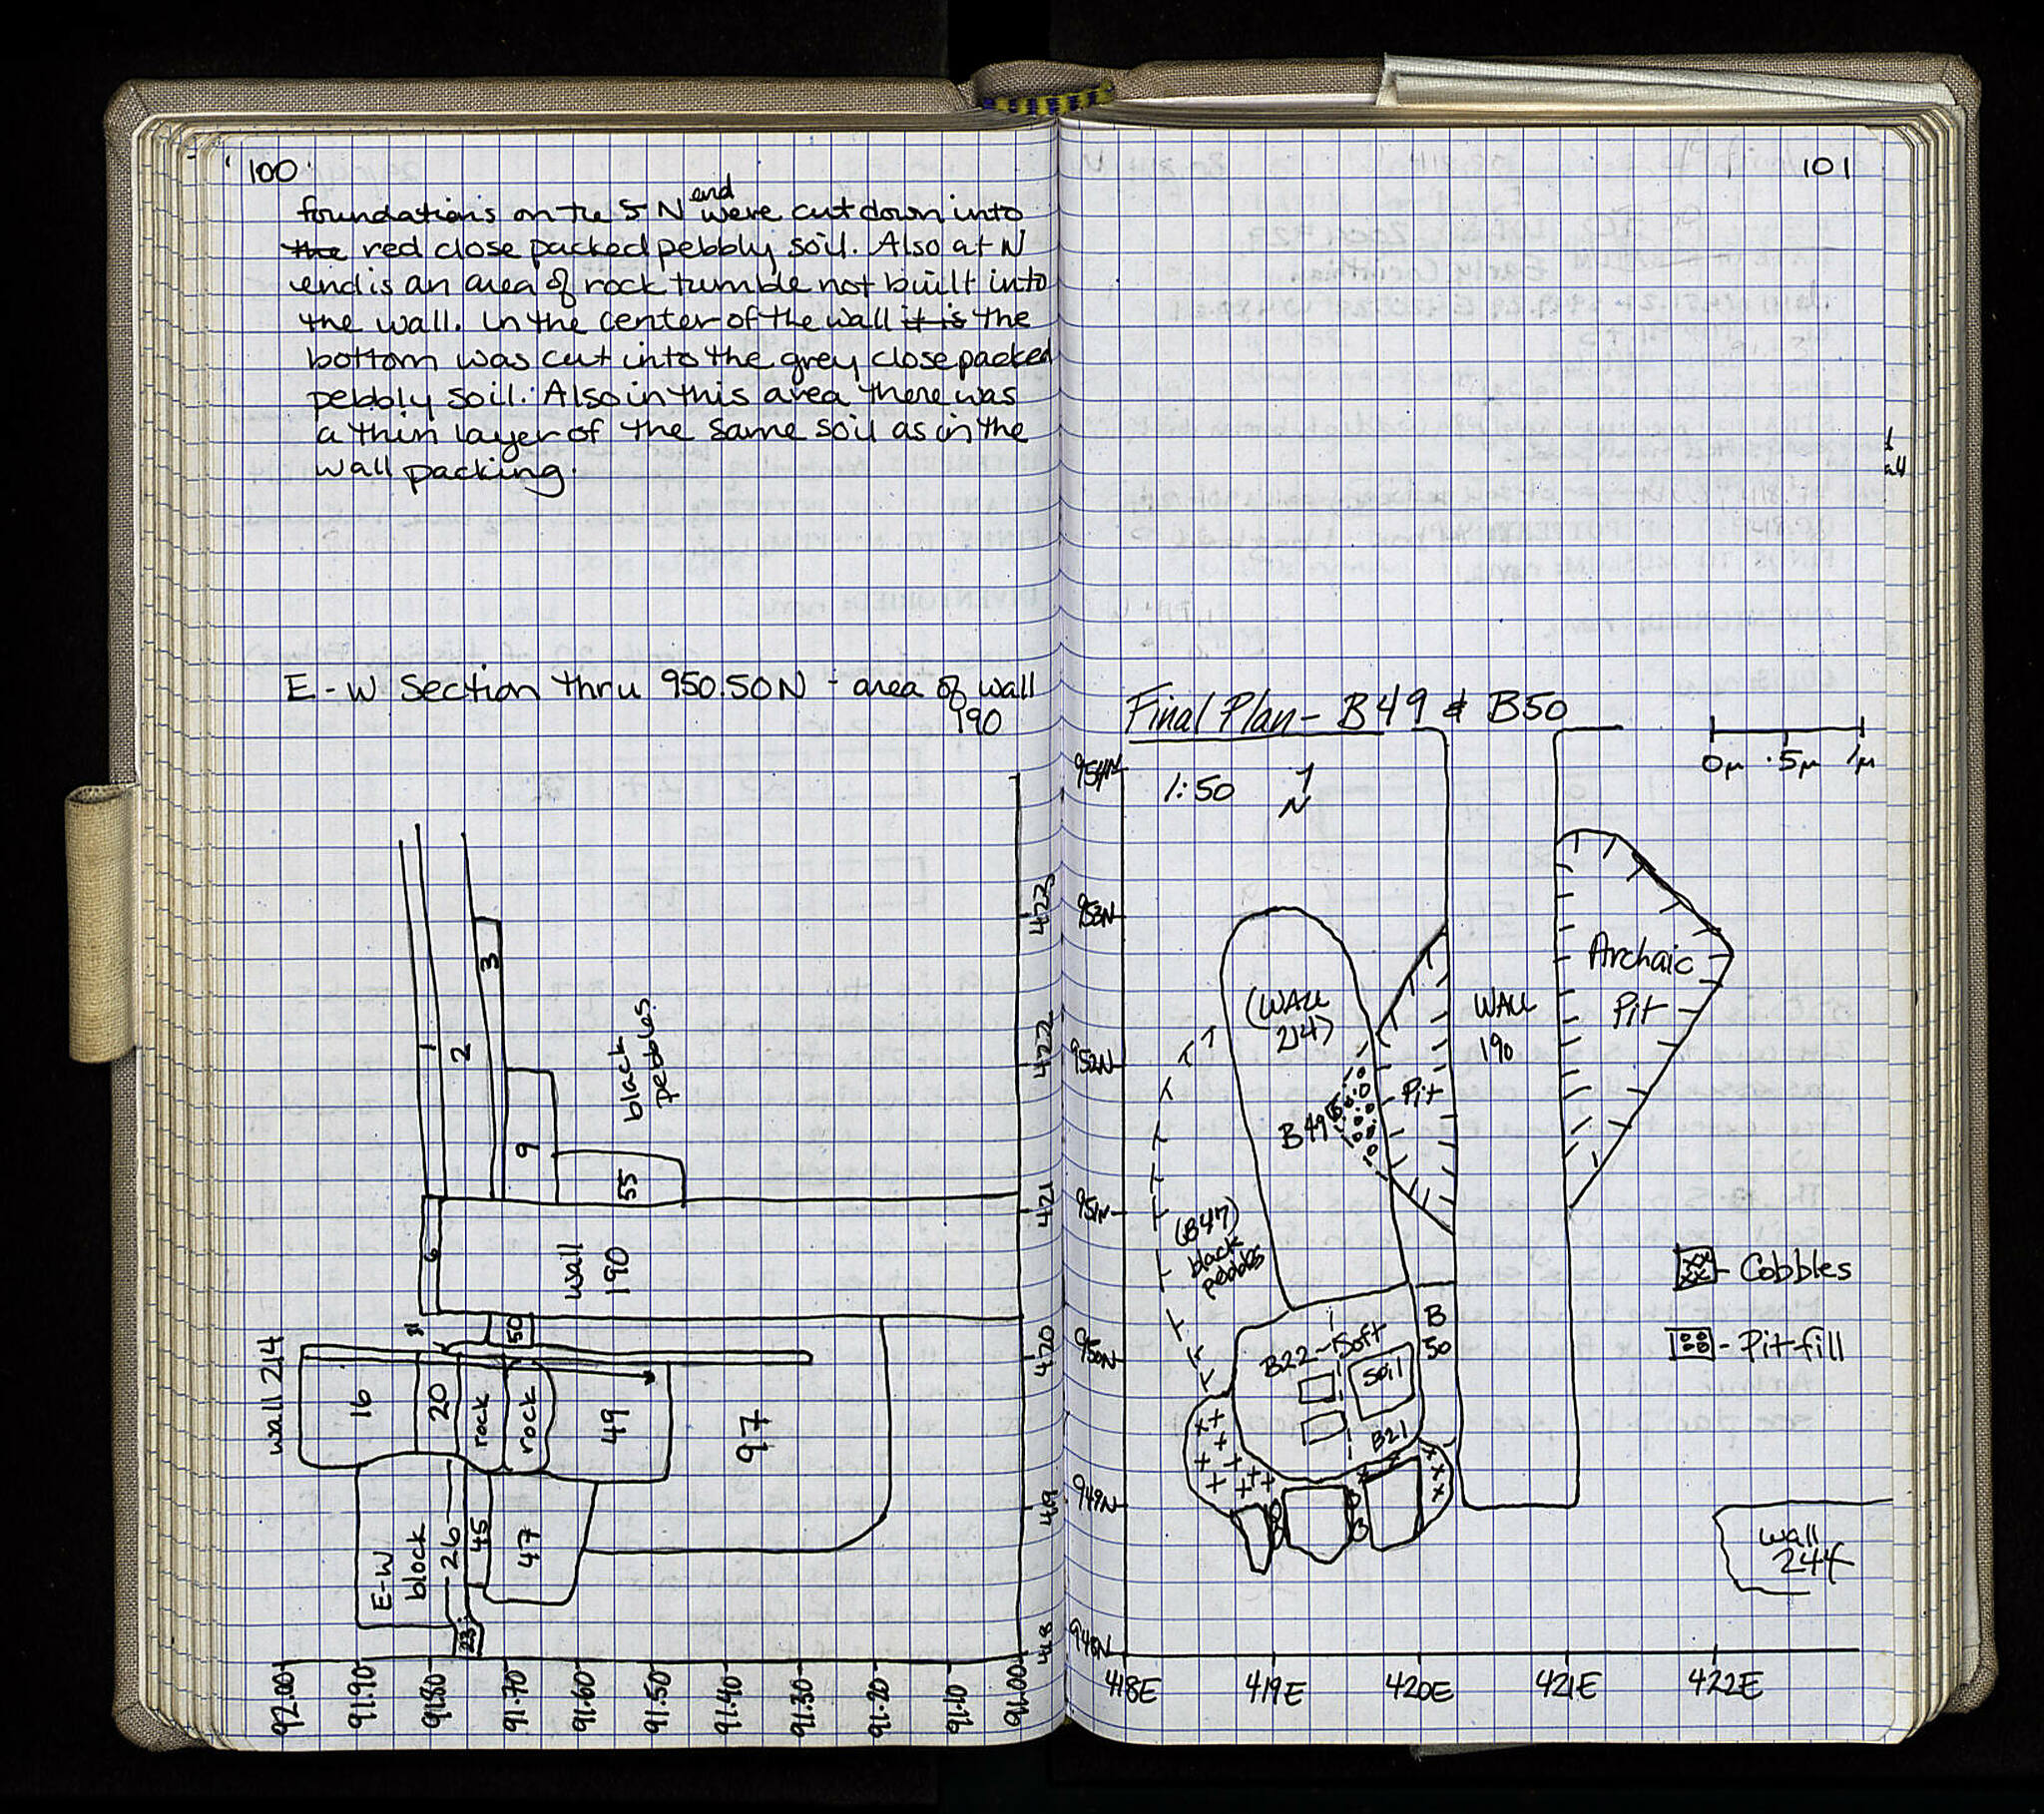 100
foundations on the S N end were cut down into
the red close packed pebbly soil. Also at N
end is an area of rock tumble not built into
the wall. In the center of the wall it is the
bottom was cut into the grey close packed
pebbly soil. Also in this area there was
a thin layer of the same soil as in the
wall packing.
E-W Section thru 950.50N - area of wall
190
1
2
3
9
55
black
pebbles
6
wall
190
50
wall 214
16
20
rock
rock
49
97
E-W
block
26
45
47
23
423
422
421
420
419
418
92.00
91.90
91.80
91.70
91.60
91.50
91.40
91.30
91.20
91.10
91.00
101
Final Plan - B49 & B50
1:50
N
0m .5m 1m
954N
953N
952N
951N
950N
949N
948N
(WALL
214)
B49
Pit
WALL
190
Archaic
Pit
(B47)
black
pebbles
B
50
B22-Soft
Soil
B21
Cobbles
Pit fill
wall
244
418E
419E
420E
421E
422E